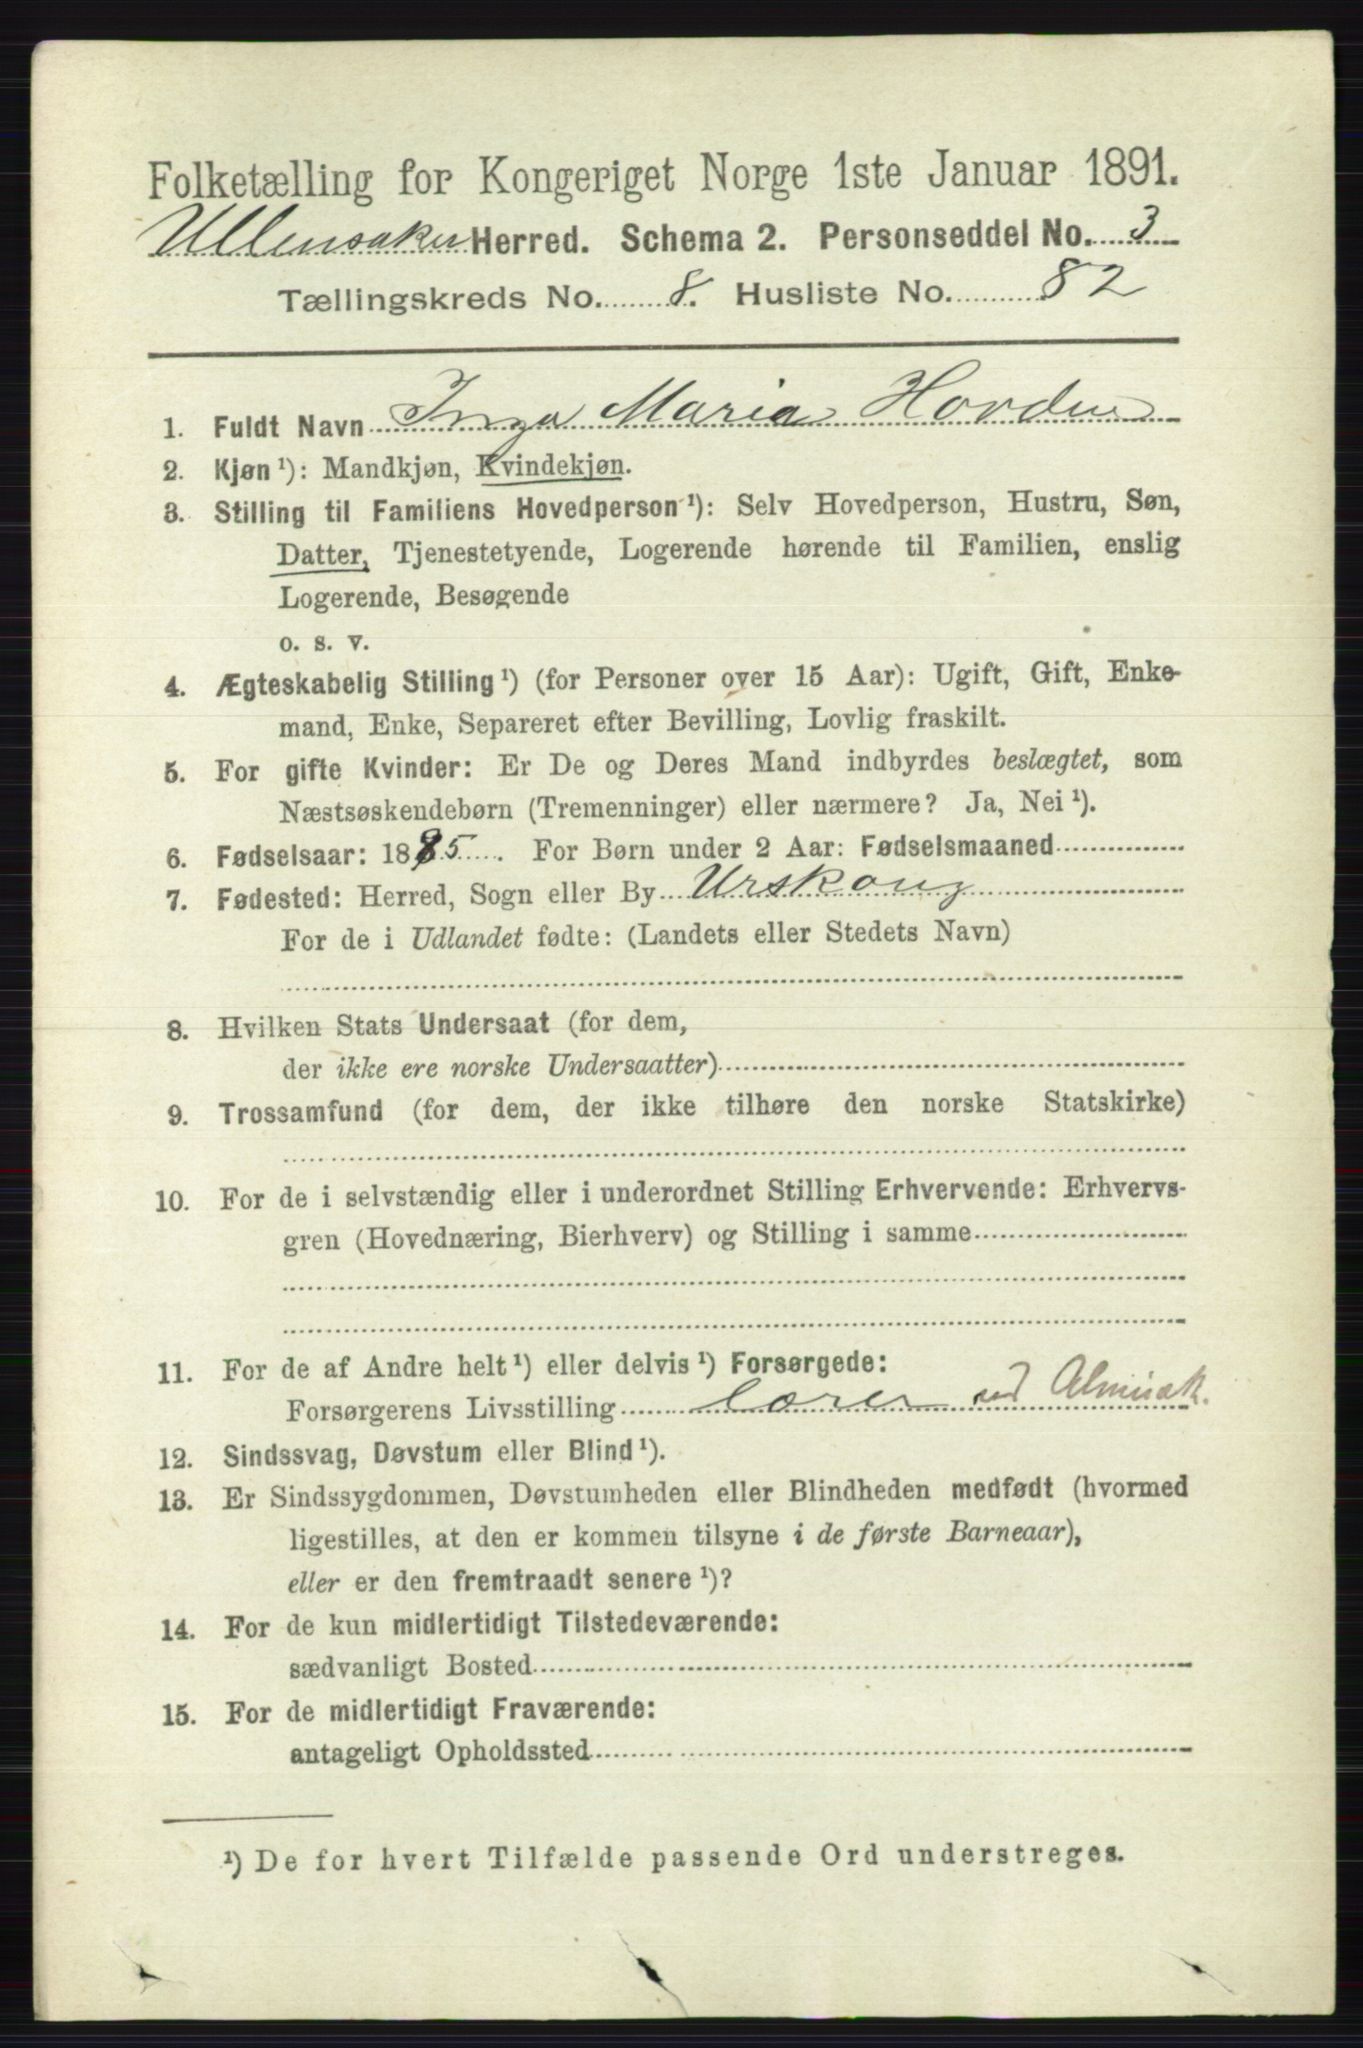 Folketælling for Kongeriget Norge 1ste Januar 1891.
Ullensaker Herred. Schema 2. Personseddel No. 3
Tællingskreds No. 8. Husliste No. 82
1. Fuldt Navn Inga Maria Hovden
2. Kjøn ¹): Mandkjøn, Kvindekjøn.
3. Stilling til Familiens Hovedperson ¹): Selv Hovedperson, Hustru, Søn,
Datter, Tjenestetyende, Logerende hørende til Familien, enslig
Logerende, Besøgende
o. s. v.
4. Ægteskabelig Stilling ¹) (for Personer over 15 Aar): Ugift, Gift, Enke-
mand, Enke, Separeret efter Bevilling, Lovlig fraskilt.
5. For gifte Kvinder: Er De og Deres Mand indbyrdes beslægtet, som
Næstsøskendebørn (Tremenninger) eller nærmere? Ja, Nei ¹).
6. Fødselsaar: 1885. For Børn under 2 Aar: Fødselsmaaned
7. Fødested: Herred, Sogn eller By Urskoug
For de i Udlandet fødte: (Landets eller Stedets Navn)
8. Hvilken Stats Undersaat (for dem,
der ikke ere norske Undersaatter)
9. Trossamfund (for dem, der ikke tilhøre den norske Statskirke)
10. For de i selvstændig eller i underordnet Stilling Erhvervende: Erhvervs-
gren (Hovednæring, Bierhverv) og Stilling i samme
11. For de af Andre helt ¹) eller delvis ¹) Forsørgede:
Forsørgerens Livsstilling Lærer ved Almusk.
12. Sindssvag, Døvstum eller Blind ¹).
13. Er Sindssygdommen, Døvstumheden eller Blindheden medfødt (hvormed
ligestilles, at den er kommen tilsyne i de første Barneaar),
eller er den fremtraadt senere ¹)?
14. For de kun midlertidigt Tilstedeværende:
sædvanligt Bosted
15. For de midlertidigt Fraværende:
antageligt Opholdssted
¹) De for hvert Tilfælde passende Ord understreges.